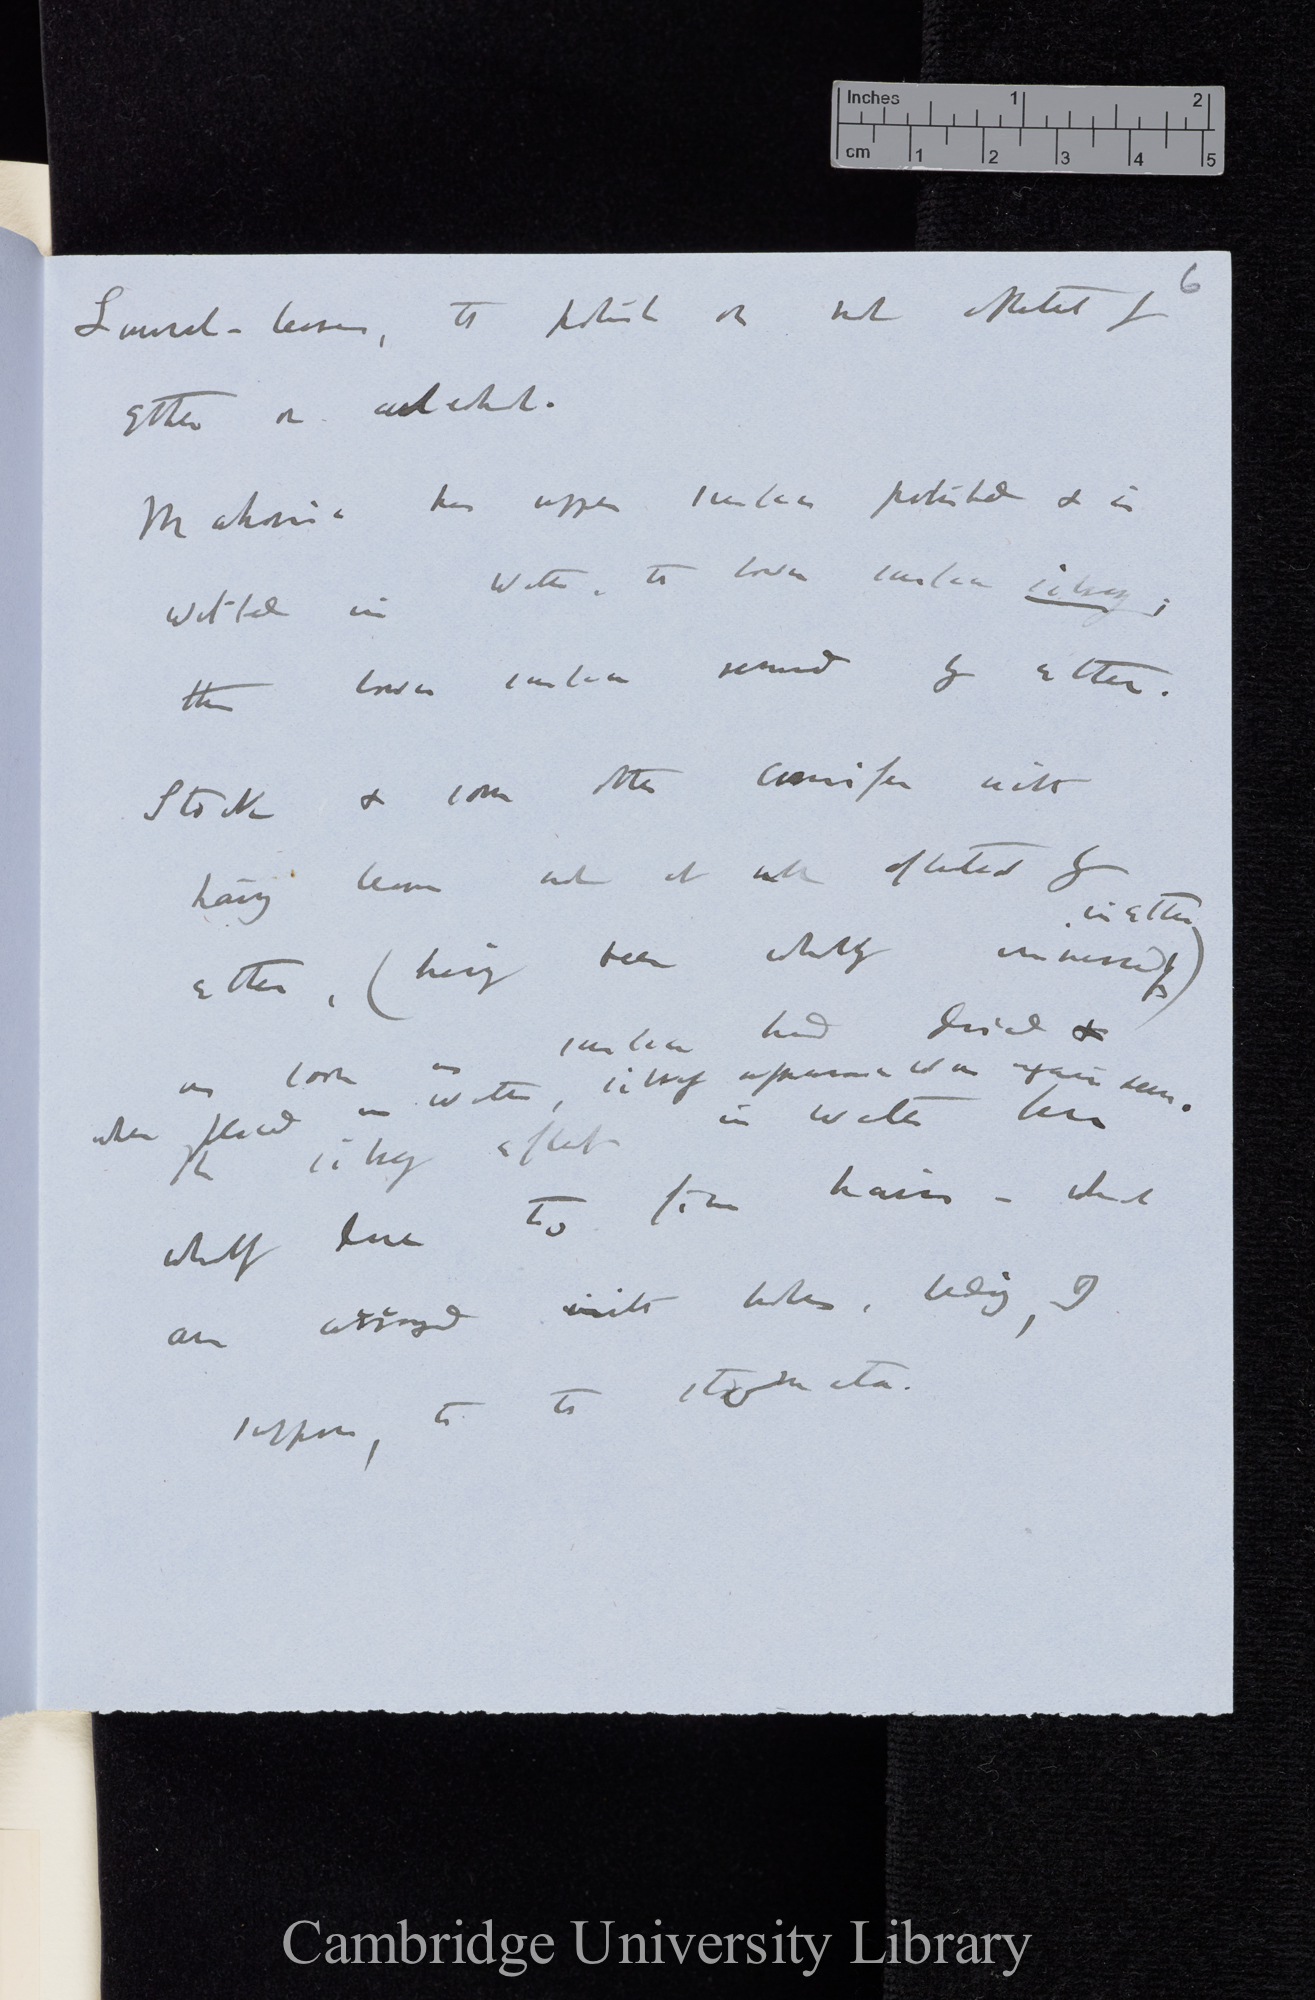 Inches 1 2
cm 1 2 3 4 5
6
Laurel-leaves, the polish is not affected by
Ether or alcohol.
Mahonia has upper surface polished & is
wetted in water, the lower surface silvery;
the lower surface removed by ether.
Stock & some other Crucifer with
hairy leaves not at all affected by
in ether
ether, (having been wholly immersed)
as soon as surface had dried &
when placed in water, silvery appearance was again seen.
The silvery effect in water here
wholly due to fine hairs – which
are arranged with holes, leading, I
suppose, to the stomata.
Cambridge University Library